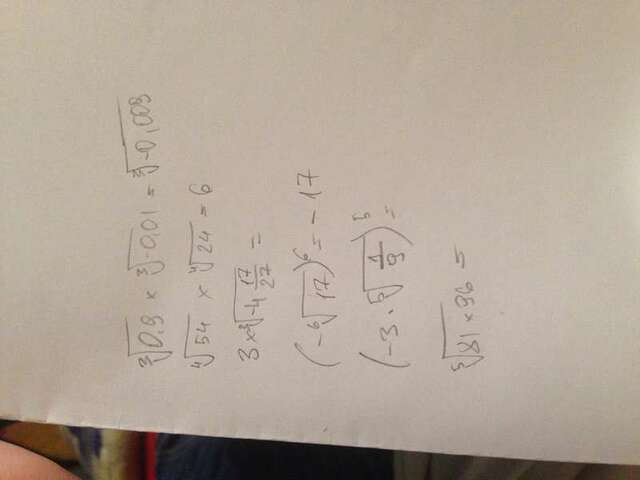 ∛0,9 × ∛-0,01 = ∛-0,009
∜54 × ∜24 = 6
3 × ∛-4 17/27 =
(- ⁶√17)⁶ = - 17
(-3 · ⁵√1/9)⁵ =
⁵√81 × 96 =